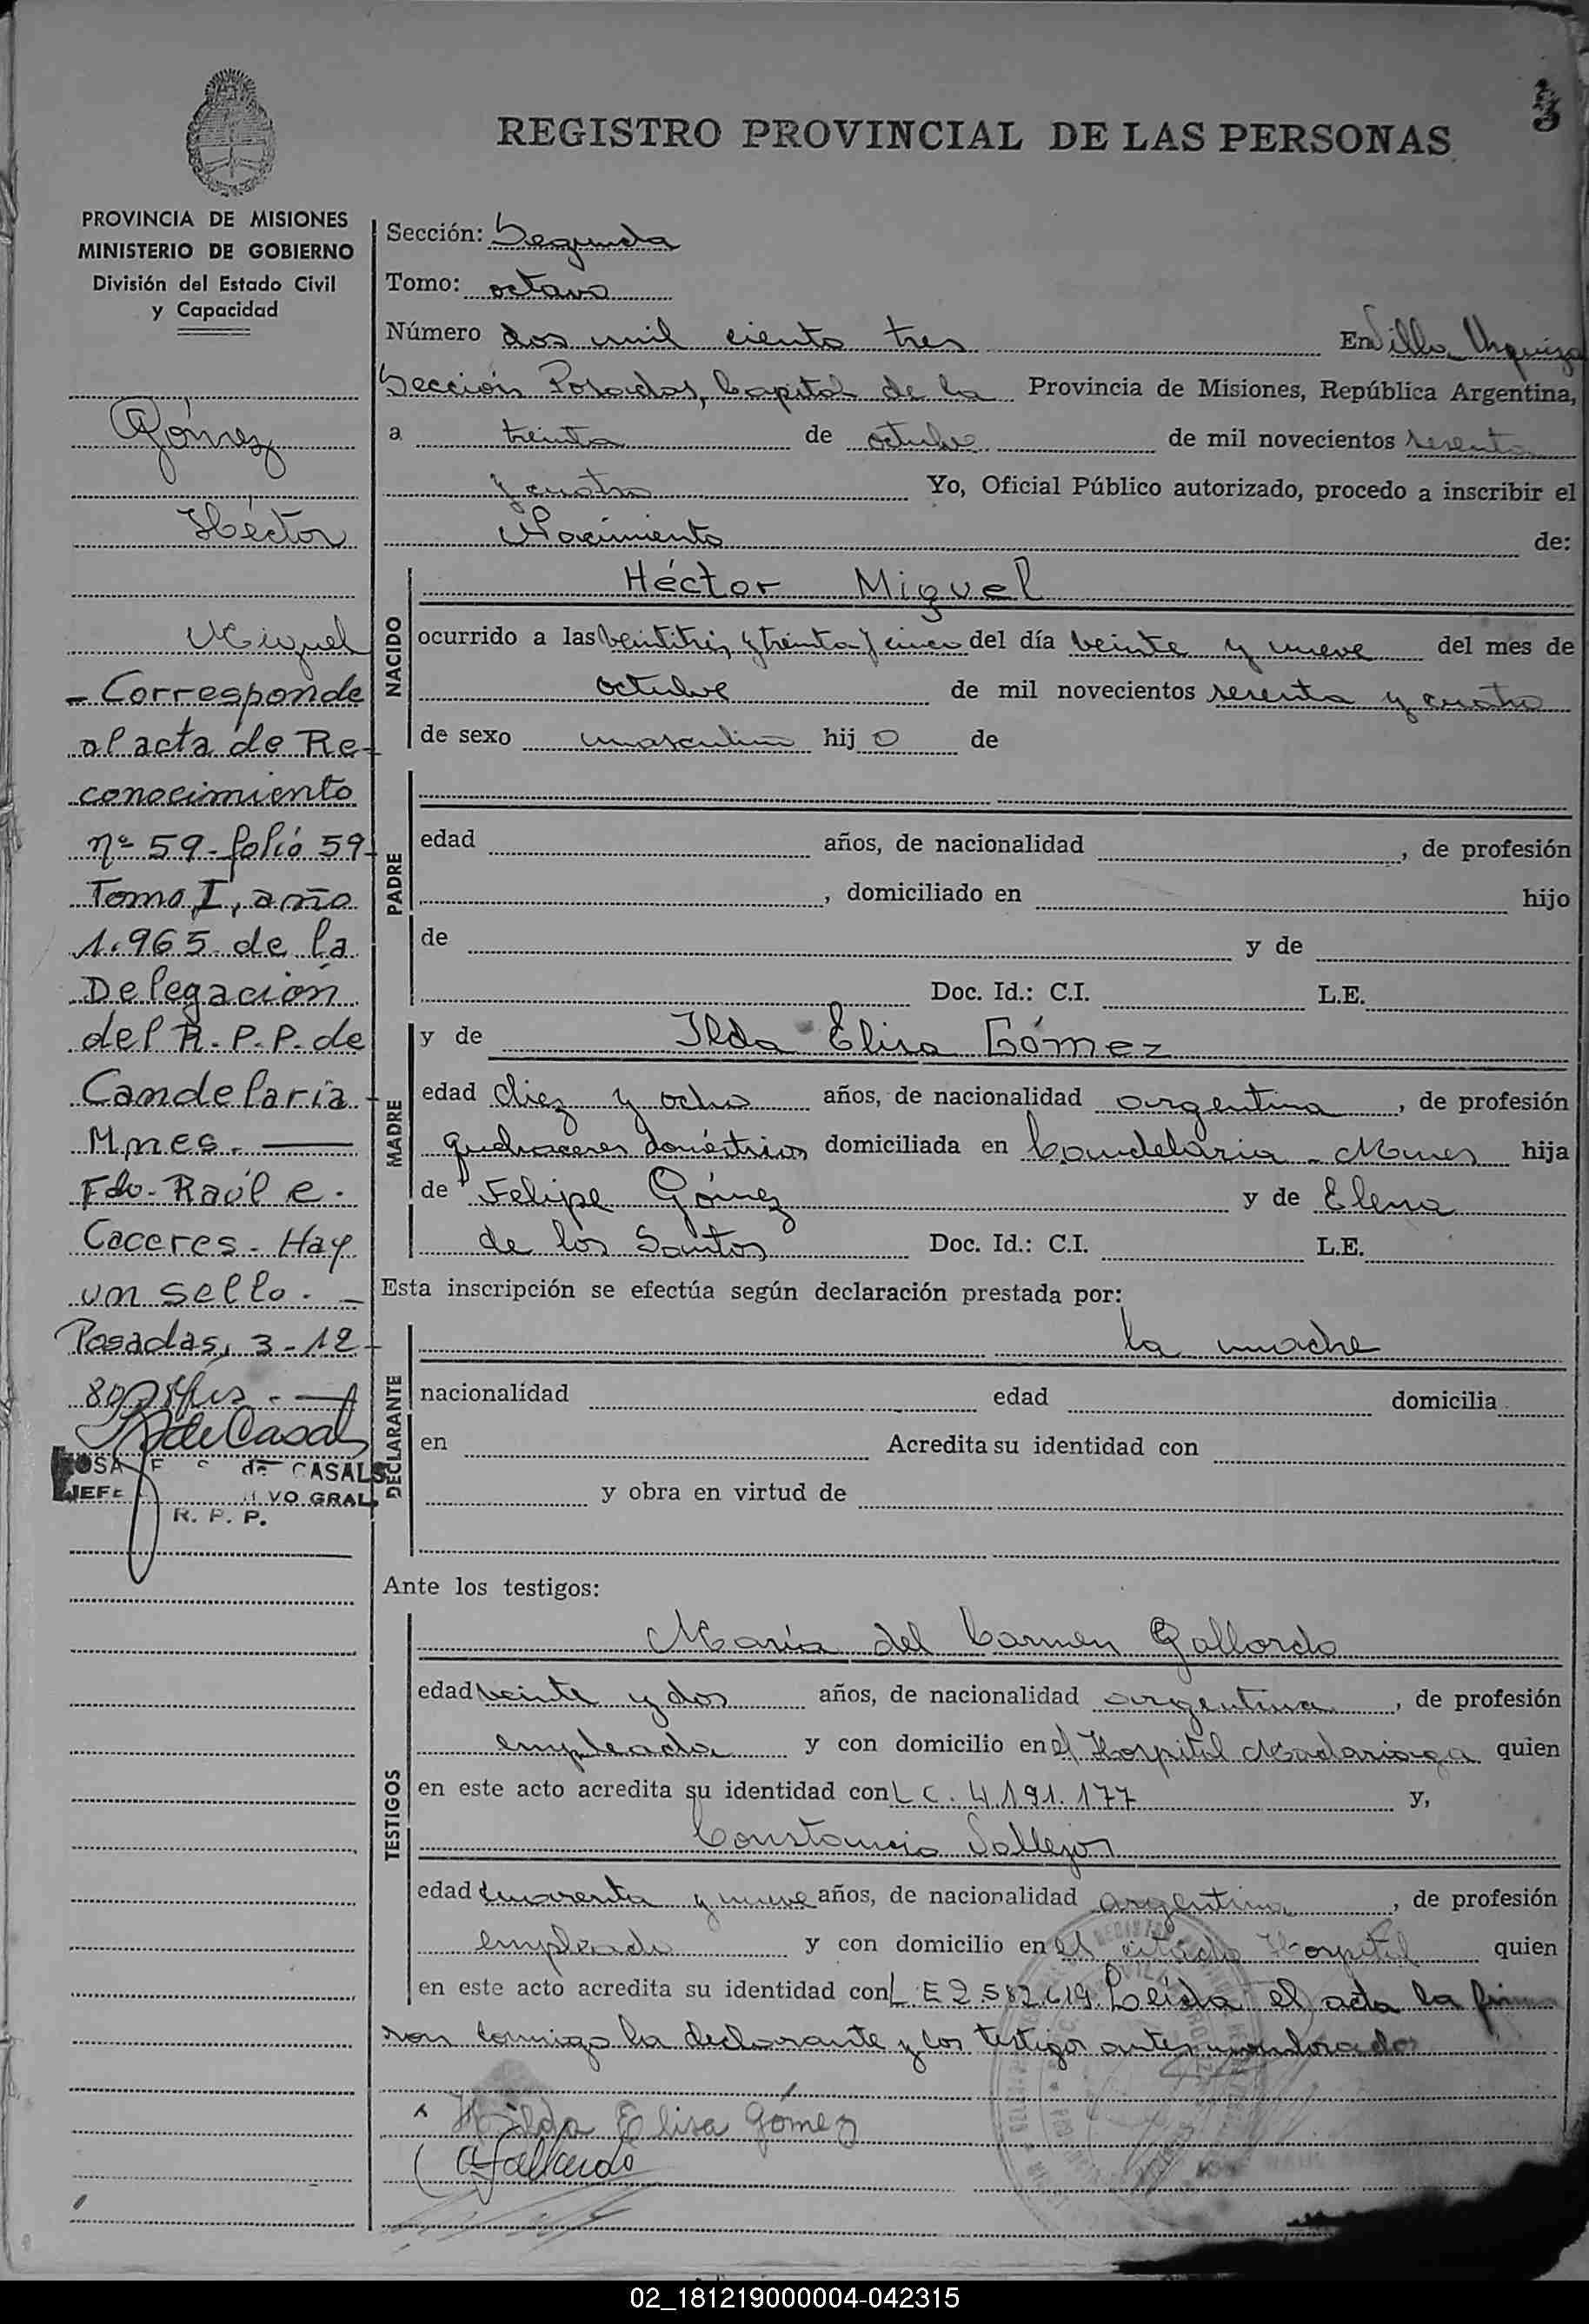 3
REGISTRO PROVINCIAL DE LAS PERSONAS
PROVINCIA DE MISIONES
MINISTERIO DE GOBIERNO
División del Estado Civil
y Capacidad
Gómez
Héctor
Miguel
- Corresponde
al acta de Re-
conocimiento
nº 59 - folio 59-
Tomo I, año
1.965 de la
Delegación
del R.P.P. de
Candelaria -
Mnes.
Fdo. Raúl e.
Caceres - Hay
un sello. -
Posadas, 3-12-
80
de Casals
de CASALS
JEFE VO GRAL.
R. P. P.
Sección: Segunda
Tomo: octavo
Número dos mil ciento tres En Villa Urquiza
Sección Posadas, Capital de la Provincia de Misiones, República Argentina,
a treinta de octubre de mil novecientos sesenta
y cuatro Yo, Oficial Público autorizado, procedo a inscribir el
Nacimiento de:
NACIDO
Héctor Miguel
ocurrido a las veintitrés y treinta y cinco del día veinte y nueve del mes de
octubre de mil novecientos sesenta y cuatro
de sexo masculino hijo de
PADRE
edad años, de nacionalidad , de profesión
, domiciliado en hijo
de y de
Doc. Id.: C.I. L.E.
MADRE
y de Ilda Elisa Gómez
edad diez y ocho años, de nacionalidad argentina , de profesión
quehaceres domésticos domiciliada en Candelaria - Mnes hija
de Felipe Gómez y de Elena
de los Santos Doc. Id.: C.I. L.E.
Esta inscripción se efectúa según declaración prestada por:
DECLARANTE
la madre
nacionalidad edad domicilia
en Acredita su identidad con
y obra en virtud de
Ante los testigos:
TESTIGOS
María del Carmen Gallardo
edad veinte y dos años, de nacionalidad argentina , de profesión
empleada y con domicilio en el Hospital Madariaga quien
en este acto acredita su identidad con L C. 4.191.177 y,
Constancio Vallejos
edad cuarenta y nueve años, de nacionalidad argentina , de profesión
empleado y con domicilio en el citado Hospital quien
en este acto acredita su identidad con L E 2.582.619. Leída el acta la firma
ron conmigo la declarante y los testigos antes nombrados
Hilda Elisa Gómez
Gallardo
02_181219000004-042315